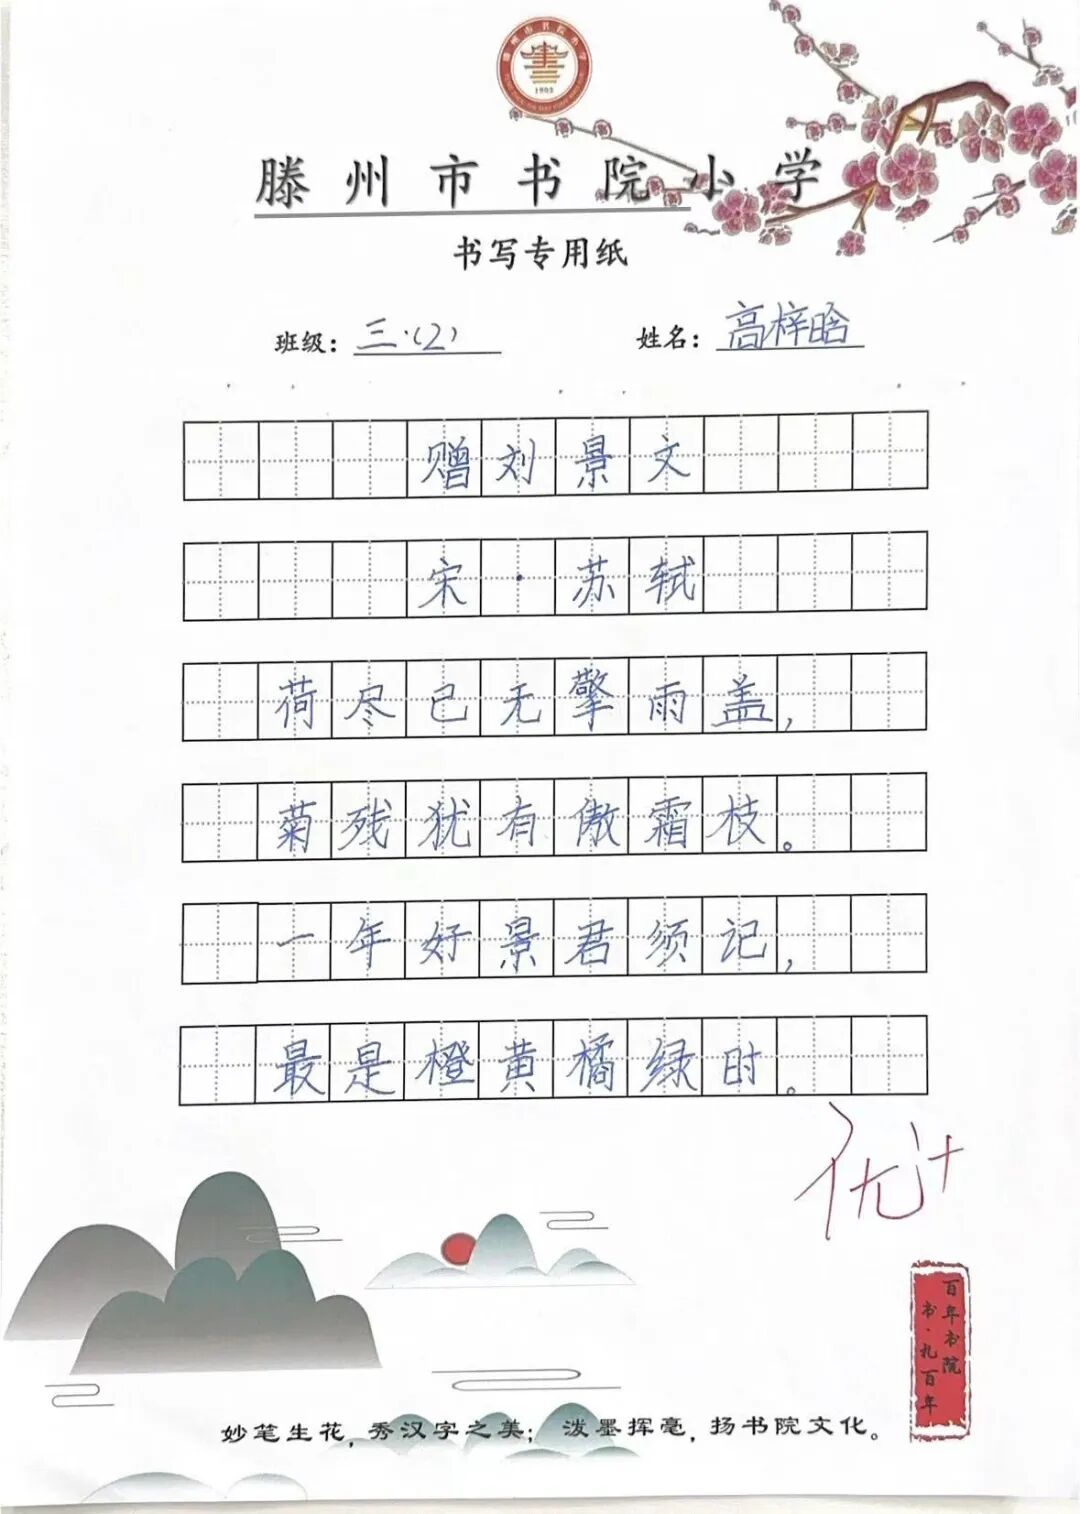 1902
滕州市书院小学
书写专用纸
班级：三.(2) 姓名：高梓晗
赠刘景文
宋·苏轼
荷尽已无擎雨盖，
菊残犹有傲霜枝。
一年好景君须记，
最是橙黄橘绿时。
优++
百年书院
书·礼百年
妙笔生花，秀汉字之美；泼墨挥毫，扬书院文化。